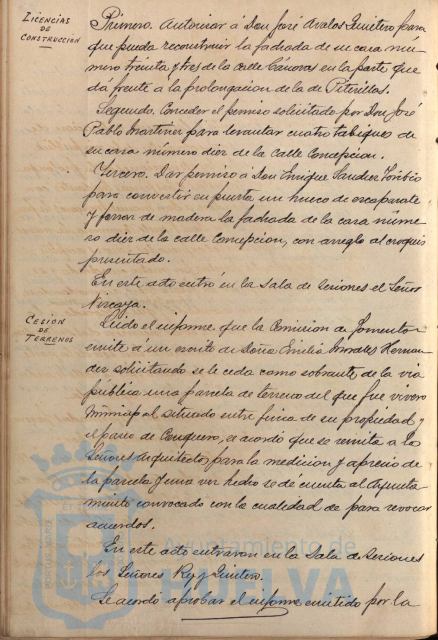 LICENCIAS
DE
CONSTRUCCIÓN
Primero. Autorizar á Don José Avalos Quintero para
que pueda reconstruir la fachada de su casa nú-
mero treinta y tres de la calle Cánovas en la parte que
dá frente á la prolongacion de la de Piterillas.
Segundo. Conceder el permiso solicitado por Don José
Pablo Martinez para levantar cuatro tabiques de
su casa número diez de la Calle Concepcion.
Tercero. Dar permiso á Don Enrique Sanchez Toribio
para convertir en puerta un hueco de escaparate
y forrar de madera la fachada de la casa núme-
ro diez de la calle Concepcion, con arreglo al croquis
presentado.
En este acto entró en la Sala de Sesiones el Señor
Vizcaya.
CESION
DE
TERRENOS
Leido el informe que la Comision de Fomento
emite á un escrito de Doña Emilia Morales Hernan-
dez solicitando se le ceda como sobrante de la via
pública una parcela de terreno del que fue vivero
Municipal situado entre finca de su propiedad y
el paseo de Conquero, se acordó que se remita a los
Señores Arquitectos para la medicion y aprecio de
la parcela y una vez hecho se de cuenta al Ayunta-
miento convocado con la cualidad de para revocar
acuerdos.
En este acto entraron en la Sala de Sesiones
los Señores Rey y Quintero.
Se acordó aprobar el informe emitido por la
Ayuntamiento de
HUELVA